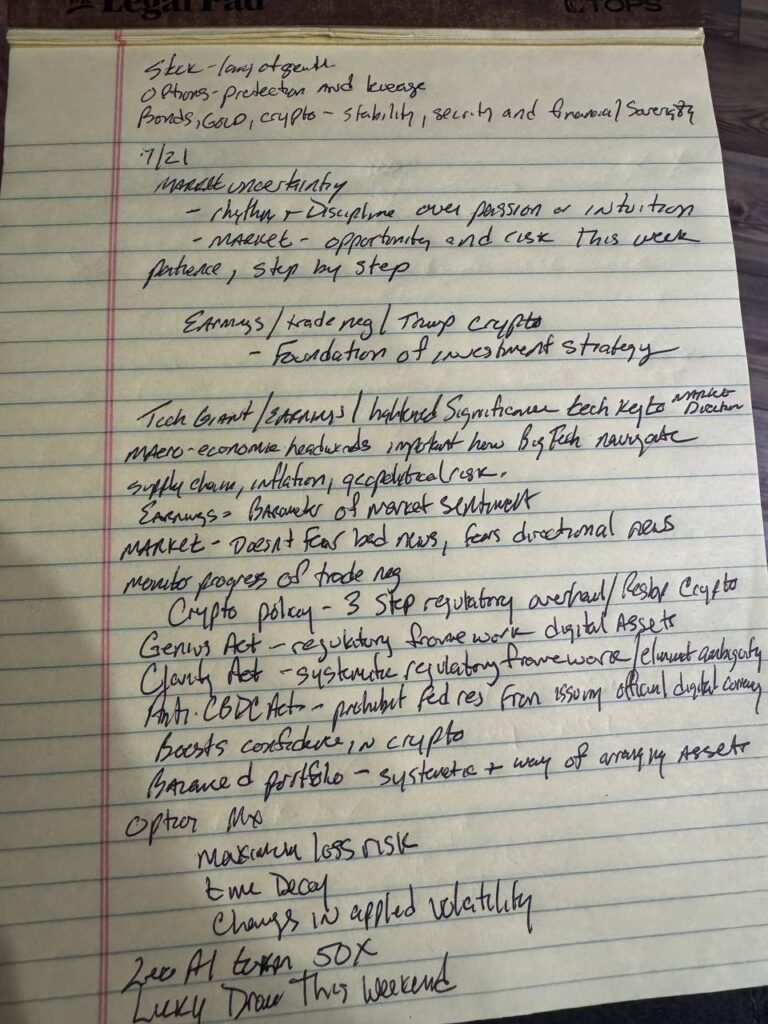 Legal Pad
TOPS
Stock - long
Options - protection and leverage
Bonds, Gold, crypto - stability, security and financial
7/21
MARKET uncertainty
- rhythm + Discipline over passion or intuition
- MARKET - opportunity and risk This week
patience, step by step
EARnings/trade neg/Trump crypto
- Foundation of investment strategy
Tech GIANT/EARnings/ Significance tech key to MARKET Direction
MACro-economic headwinds important how Big Tech navigate
supply chain, inflation, geopolitical risk.
EARnings = Barometer of market sentiment
MARKET - Doesn't Fear bad news, fears directional news
monitor progress of trade neg
Crypto policy - 3 step regulatory overhaul/ Crypto
Genius Act - regulatory framework digital Assets
Clarity Act - systematic regulatory framework/ ambiguity
Anti-CBDC Act - prohibit Fed res From issuing official digital currency
Boosts confidence in crypto
Balanced portfolio - systematic + way of arranging Assets
Option
Maximum loss risk
time Decay
Changes in applied volatility
AI 50X
Lucky Draw This Weekend